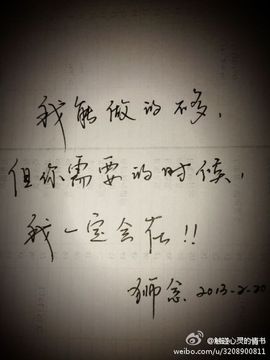 我能做的不多，
但你需要的时候，
我一定会在！！
狮念 2013-2-20
@触碰心灵的情书
weibo.com/u/3208900811